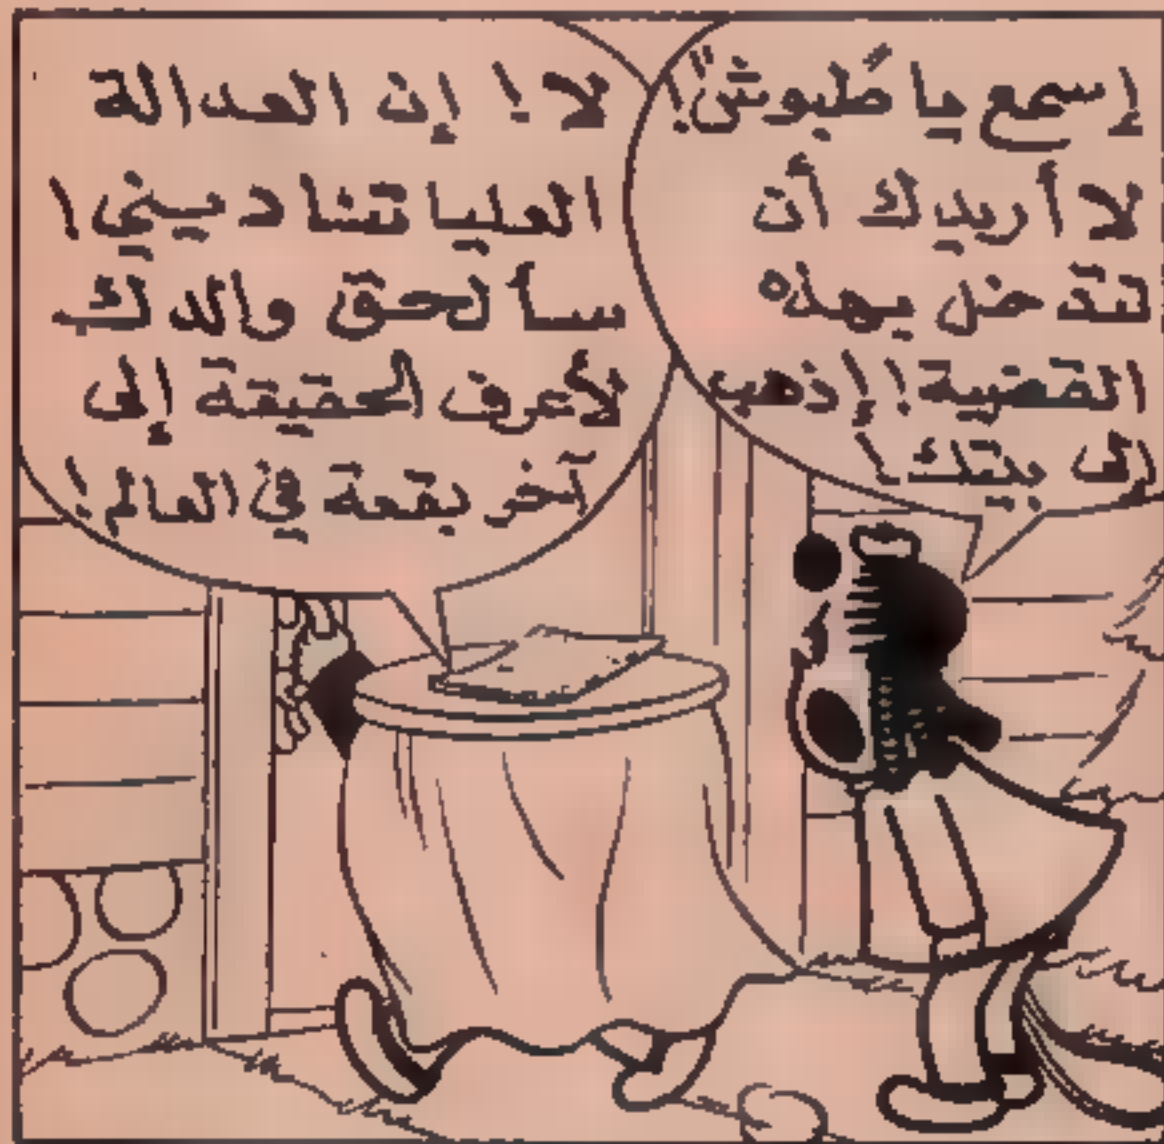 إسمع يا طبوش!
لا أريدك أن
تتدخل بهذه
القضية! إذهب
إلى بيتك!
لا! إن العدالة
العليا تناديني!
سألحق والدك
لأعرف الحقيقة إلى
آخر بقعة في العالم!